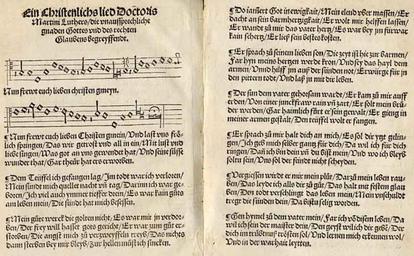 Ein Christenlichs lied Doctoris
Martini Luthers/die unaussprechliche
gnaden Gottes und des rechten
Glaubens begreyffendt.
Nun frewt euch lieben christen gmeyn.
Nun frewt euch lieben Christen gmein/Und laßt uns frö-
lich springen/Das wir getrost und all in ein/Mit lust und
liebe singen/Was got an uns gewendet hat/Und seine süsse
wunder that/Gar theür hat ers erworben.
Dem Teüffel ich gefangen lag/Im todt war ich verloren/
Mein sünde mich quellet nacht uñ tag/Darinn ich war ge-
boren/Ich viel auch ymmer tieffer drein/Es war kain güts
am leben mein/Die sünde hat mich besessen.
Mein güte werck die golten nicht/Es war mit in verdor-
ben/Der frey will hasset gots gericht/Er war zum güt er-
storben/Die angst mich zu verzweyffeln treyb/Das nichts
dann sterben bey mir bleyb/Zur hellen müst ich sincken.
Do iamert Got in ewigkait/Mein elend über massen/Er
dacht an sein barmhertzigkait/Er wolt mir helffen lassen/
Er wandt zu mir das vater hertz/Es war bey jm fürwar
kain schertz/Er ließ sein bestes kosten.
Er sprach zu seinem lieben son/Die zeyt ist hie zur barmen/
Far hyn meins hertzen werde kron/Und sey das hayl dem
armen/Und hilff jm auß der sünden not/Erwürge für jn
den pittern todt/Und laß jn mit dir leben.
Der son dem vater gehorsam warde/Er kam zu mir auff
erden/Von einer junckfraw rain uñ zart/Er solt mein brü-
der werden/Gar haimlich fürt er sein gewalt/Er gieng in
meiner armen gestalt/Den teüffel wolt er fangen.
Er sprach zu mir halt dich an mich/Es sol dir yetz gelin-
gen/Ich gib mich selber gantz für dich/Da wil ich für dich
ringen/Dañ ich bin dein uñ du bist mein/Und wo ich bleyb
soltu sein/Uns sol der feinde nicht scheyden.
Vergiessen wirdt er mir mein plüt/Darzu mein leben rau-
ben/Das leyd ich alls dir zu güt/Das halt mit festem glaubẽ
Den todt verschlingt das leben mein/Mein unschuldt
tregt die sünden dein/Da bistu selig worden.
Gen hymel zu dem vater mein/Far ich võ disem leben/Da
wil ich sein der maister dein/Den geyst wil ich dir gebẽ/Der
dich im trübtnuß trösten sol/Und lernen mich erkennen wol/
Und in der warhait leyten.